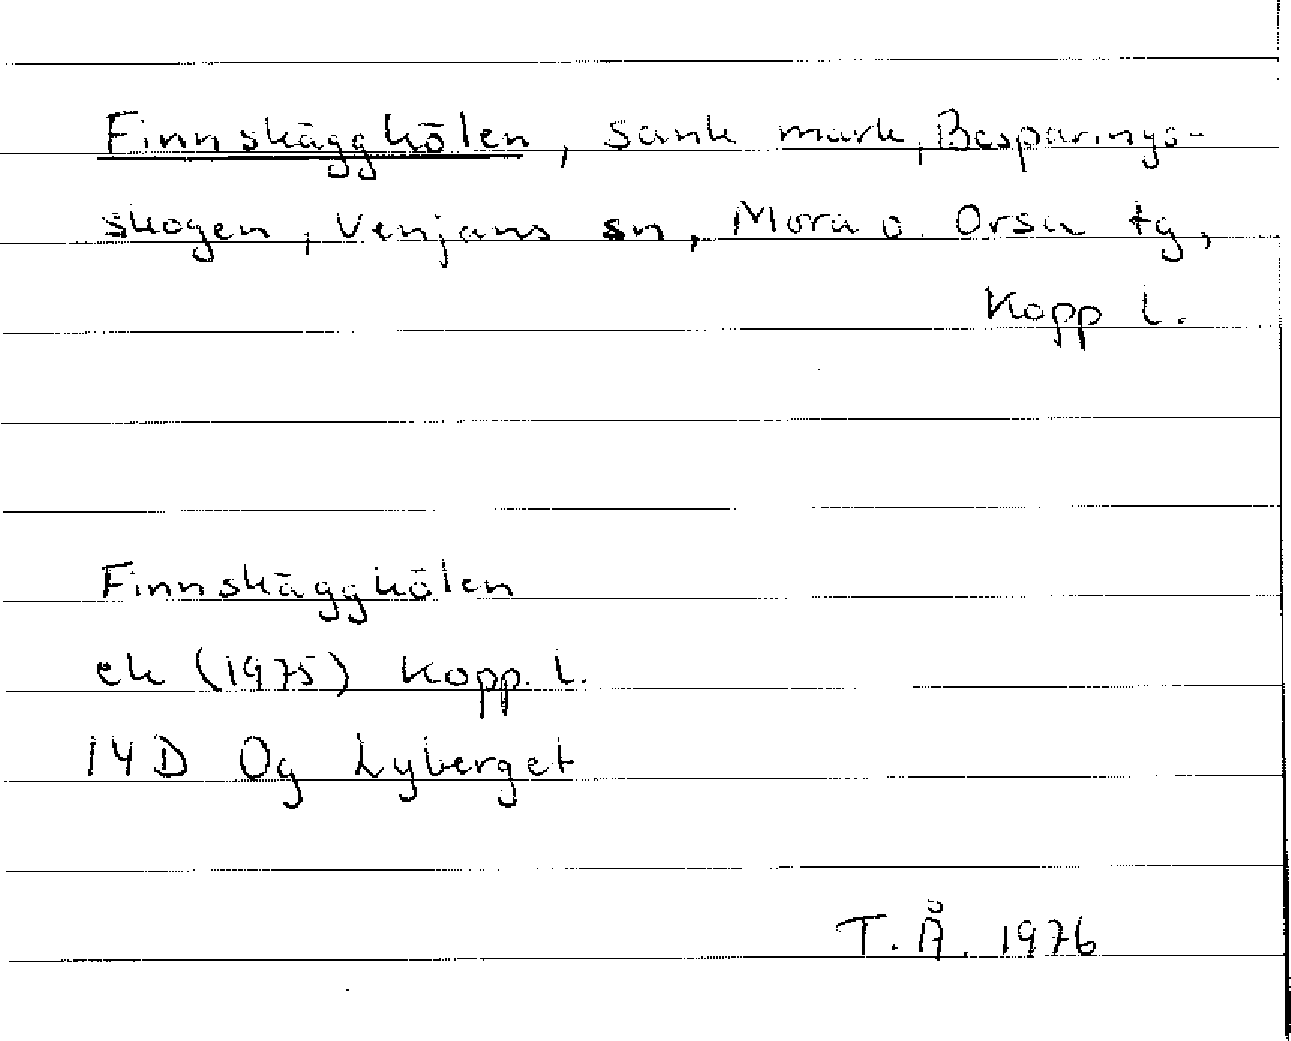 Finnskäggkölen, sank mark, Besparings-
skogen, Venjans sn, Mora o. Orsa tg,
Kopp l.
Finnskäggkölen
ek (1975) Kopp. l.
14D Og Lyberget
T. Å. 1976